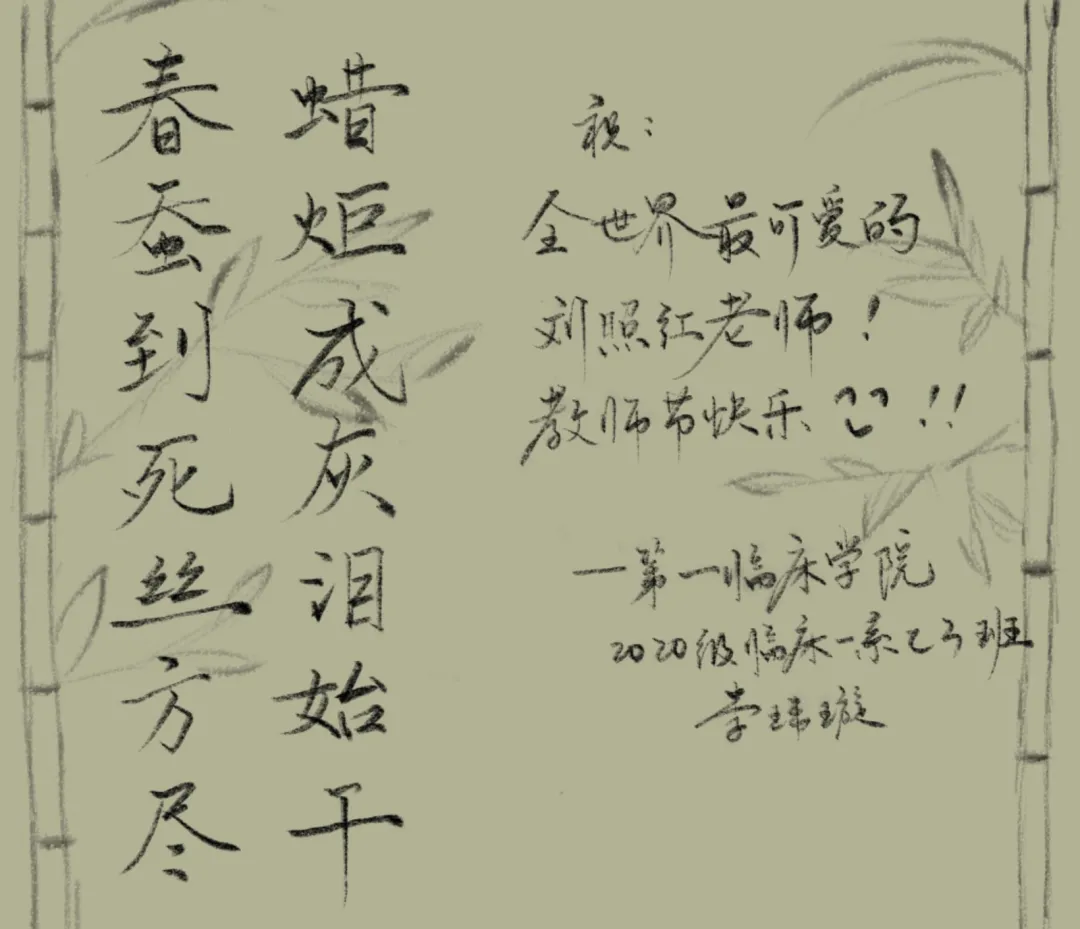 春蚕到死丝方尽
蜡炬成灰泪始干
祝：
全世界最可爱的
刘照红老师！
教师节快乐 !!
—第一临床学院
2020级临床一系乙3班
李玮璇